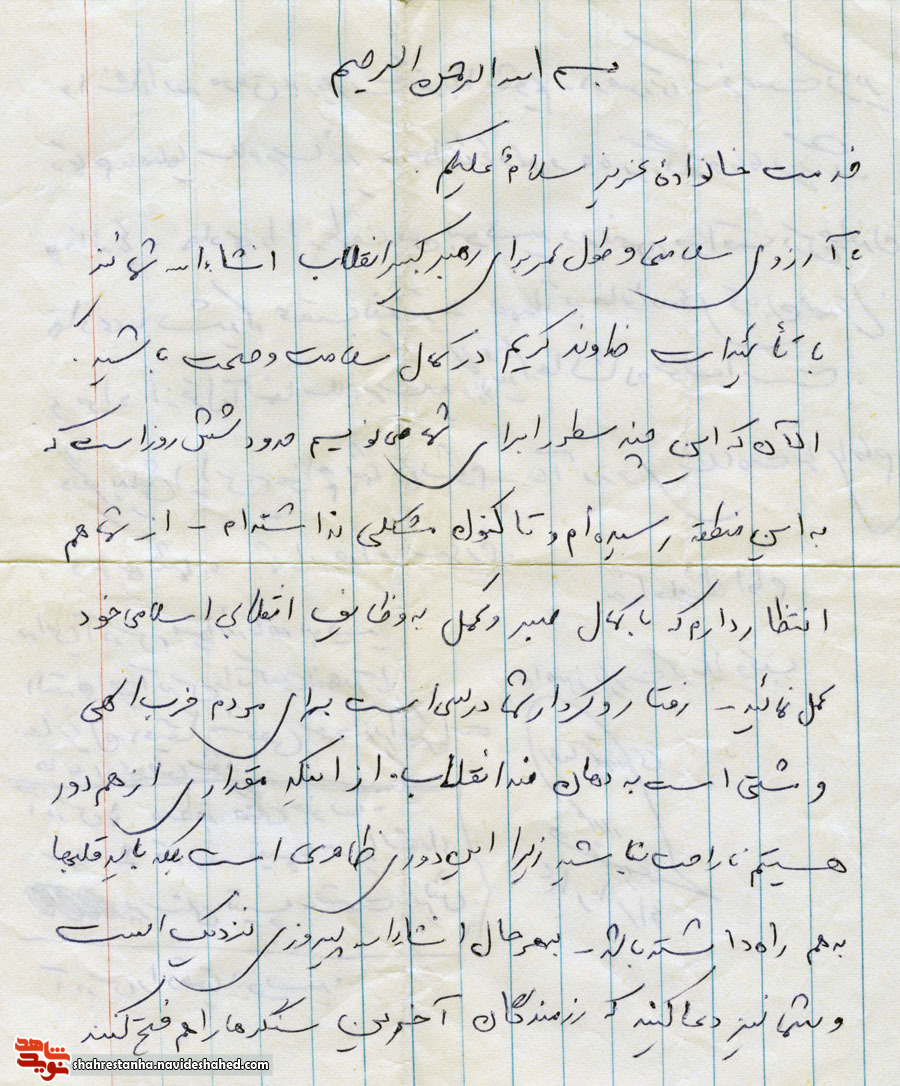 بسم الله الرحمن الرحیم
خدمت خانوادهٔ عزیز سلامٌ علیکم
با آرزوی سلامتی و طول عمر برای رهبر کبیر انقلاب انشاءالله شما نیز
با تأئیدات خداوند کریم در کمال سلامت و صحت باشید.
الآن که این چند سطور را برای شما می نویسم حدود شش روز است که
به این منطقه رسیده أم و تا کنون مشکلی نداشته ام - از شما هم
انتظار دارم که با کمال صبر و تحمل به وظایف انقلابی اسلامی خود
عمل نمائید - رفتار و کردار شما درسی است برای مردم حزب الهی
و مشتی است به دهان ضد انقلاب. از اینکه مقداری از هم دور
هستیم ناراحت نباشید زیرا این دوری ظاهری است بلکه باید قلبها
به هم راه داشته باشد - بهرحال انشاءالله پیروزی نزدیک است
و شما نیز دعا کنید که رزمندگان آخرین سنگرها را هم فتح کنند
شاهد
نوید
shahrestanha.navideshahed.com